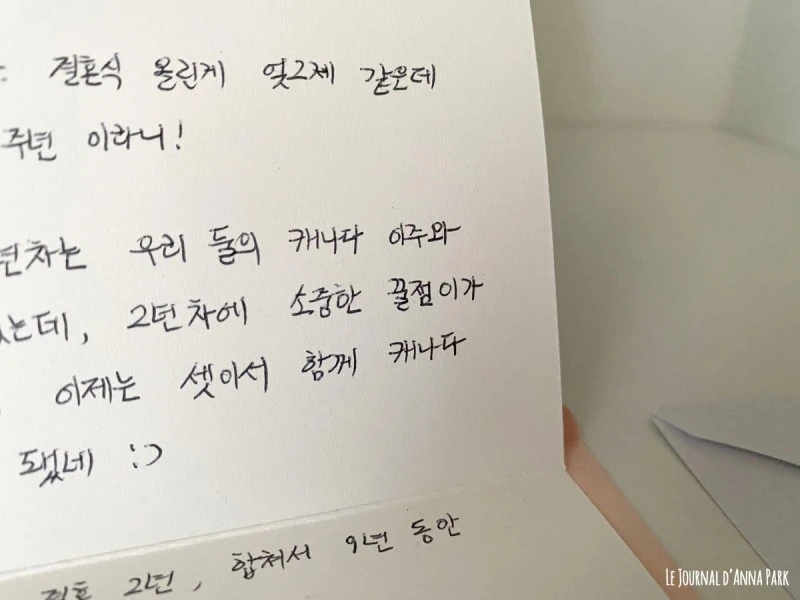 : 결혼식 올린게 엊그제 같은데
주년 이라니!
년차는 우리 둘의 캐나다 이주와
는데, 2년차에 소중한 꿀점이가
이제는 셋이서 함께 캐나다
됐네 :)
결혼 2년, 합쳐서 9년 동안
LE JOURNAL D'ANNA PARK